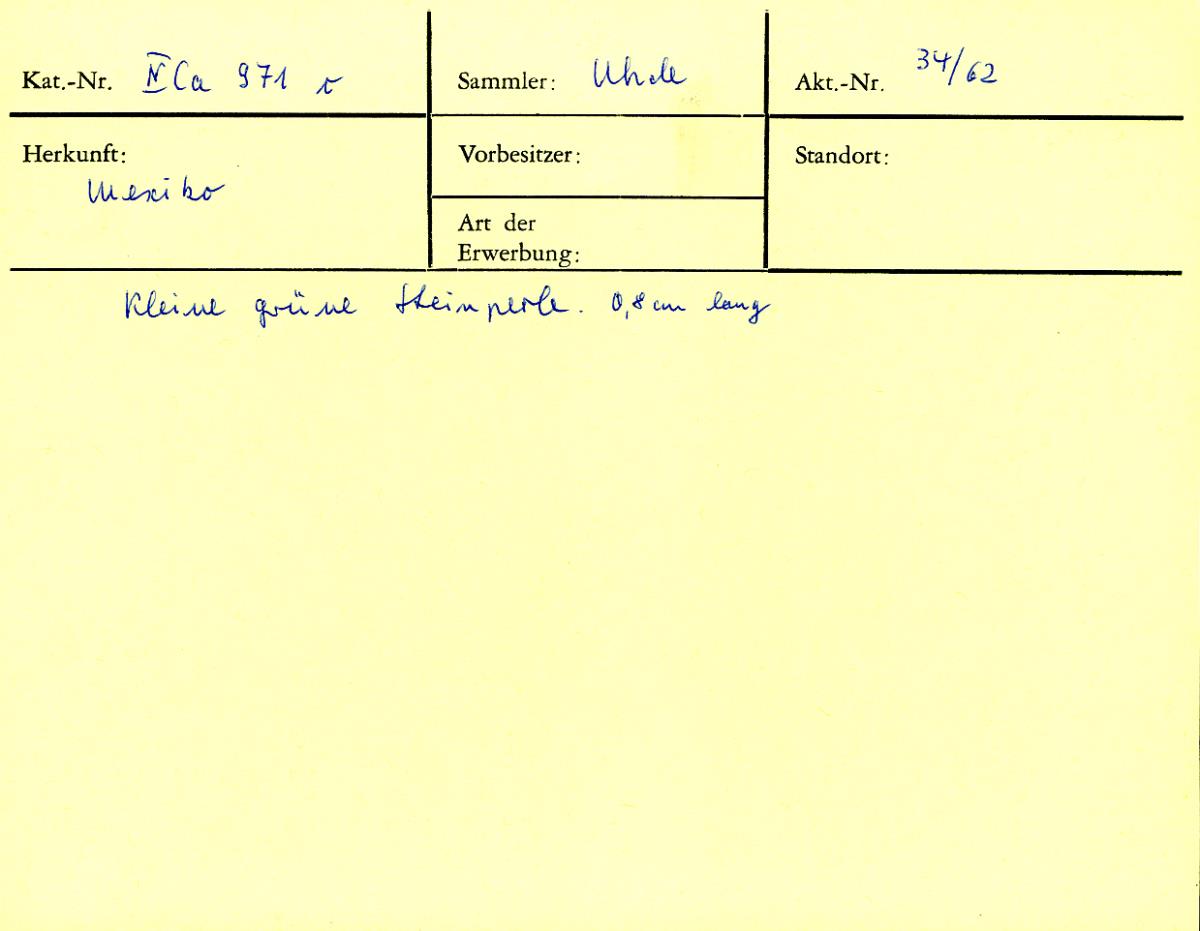 Kat.-Nr. IV Ca 971
Sammler: Uhde
Akt.-Nr. 34/62
Herkunft:
Mexiko
Vorbesitzer:
Standort:
Art der
Erwerbung:
Kleine grüne Steinperle. 0,8 cm lang